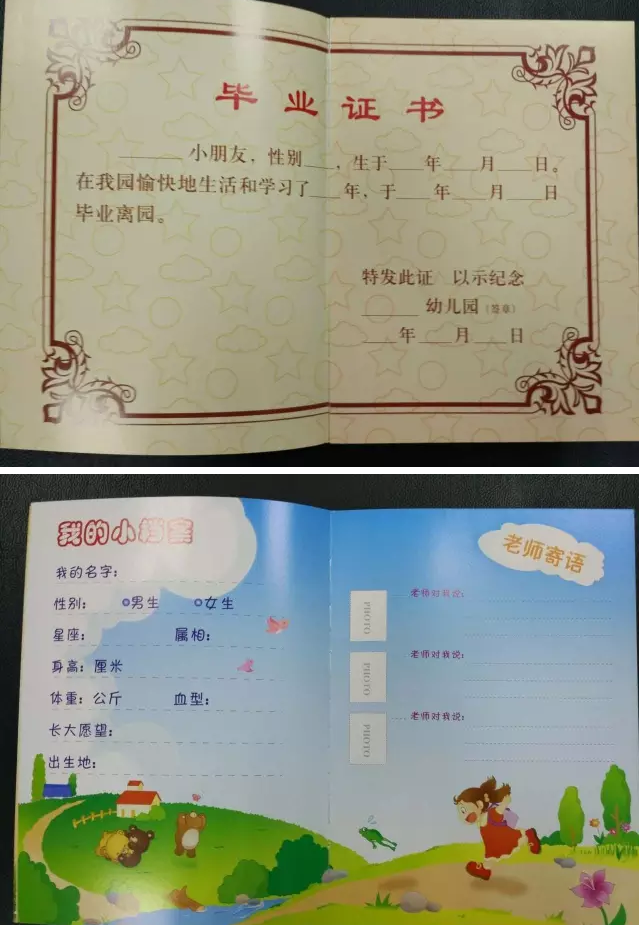 毕业证书
______小朋友，性别___，生于___年___月___日。
在我园愉快地生活和学习了___年，于___年___月___日
毕业离园。
特发此证 以示纪念
______幼儿园（签章）
___年___月___日
我的小档案
我的名字：
性别： 男生 女生
星座： 属相：
身高：厘米
体重：公斤 血型：
长大愿望：
出生地：
老师寄语
老师对我说：
PHOTO
老师对我说：
PHOTO
老师对我说：
PHOTO